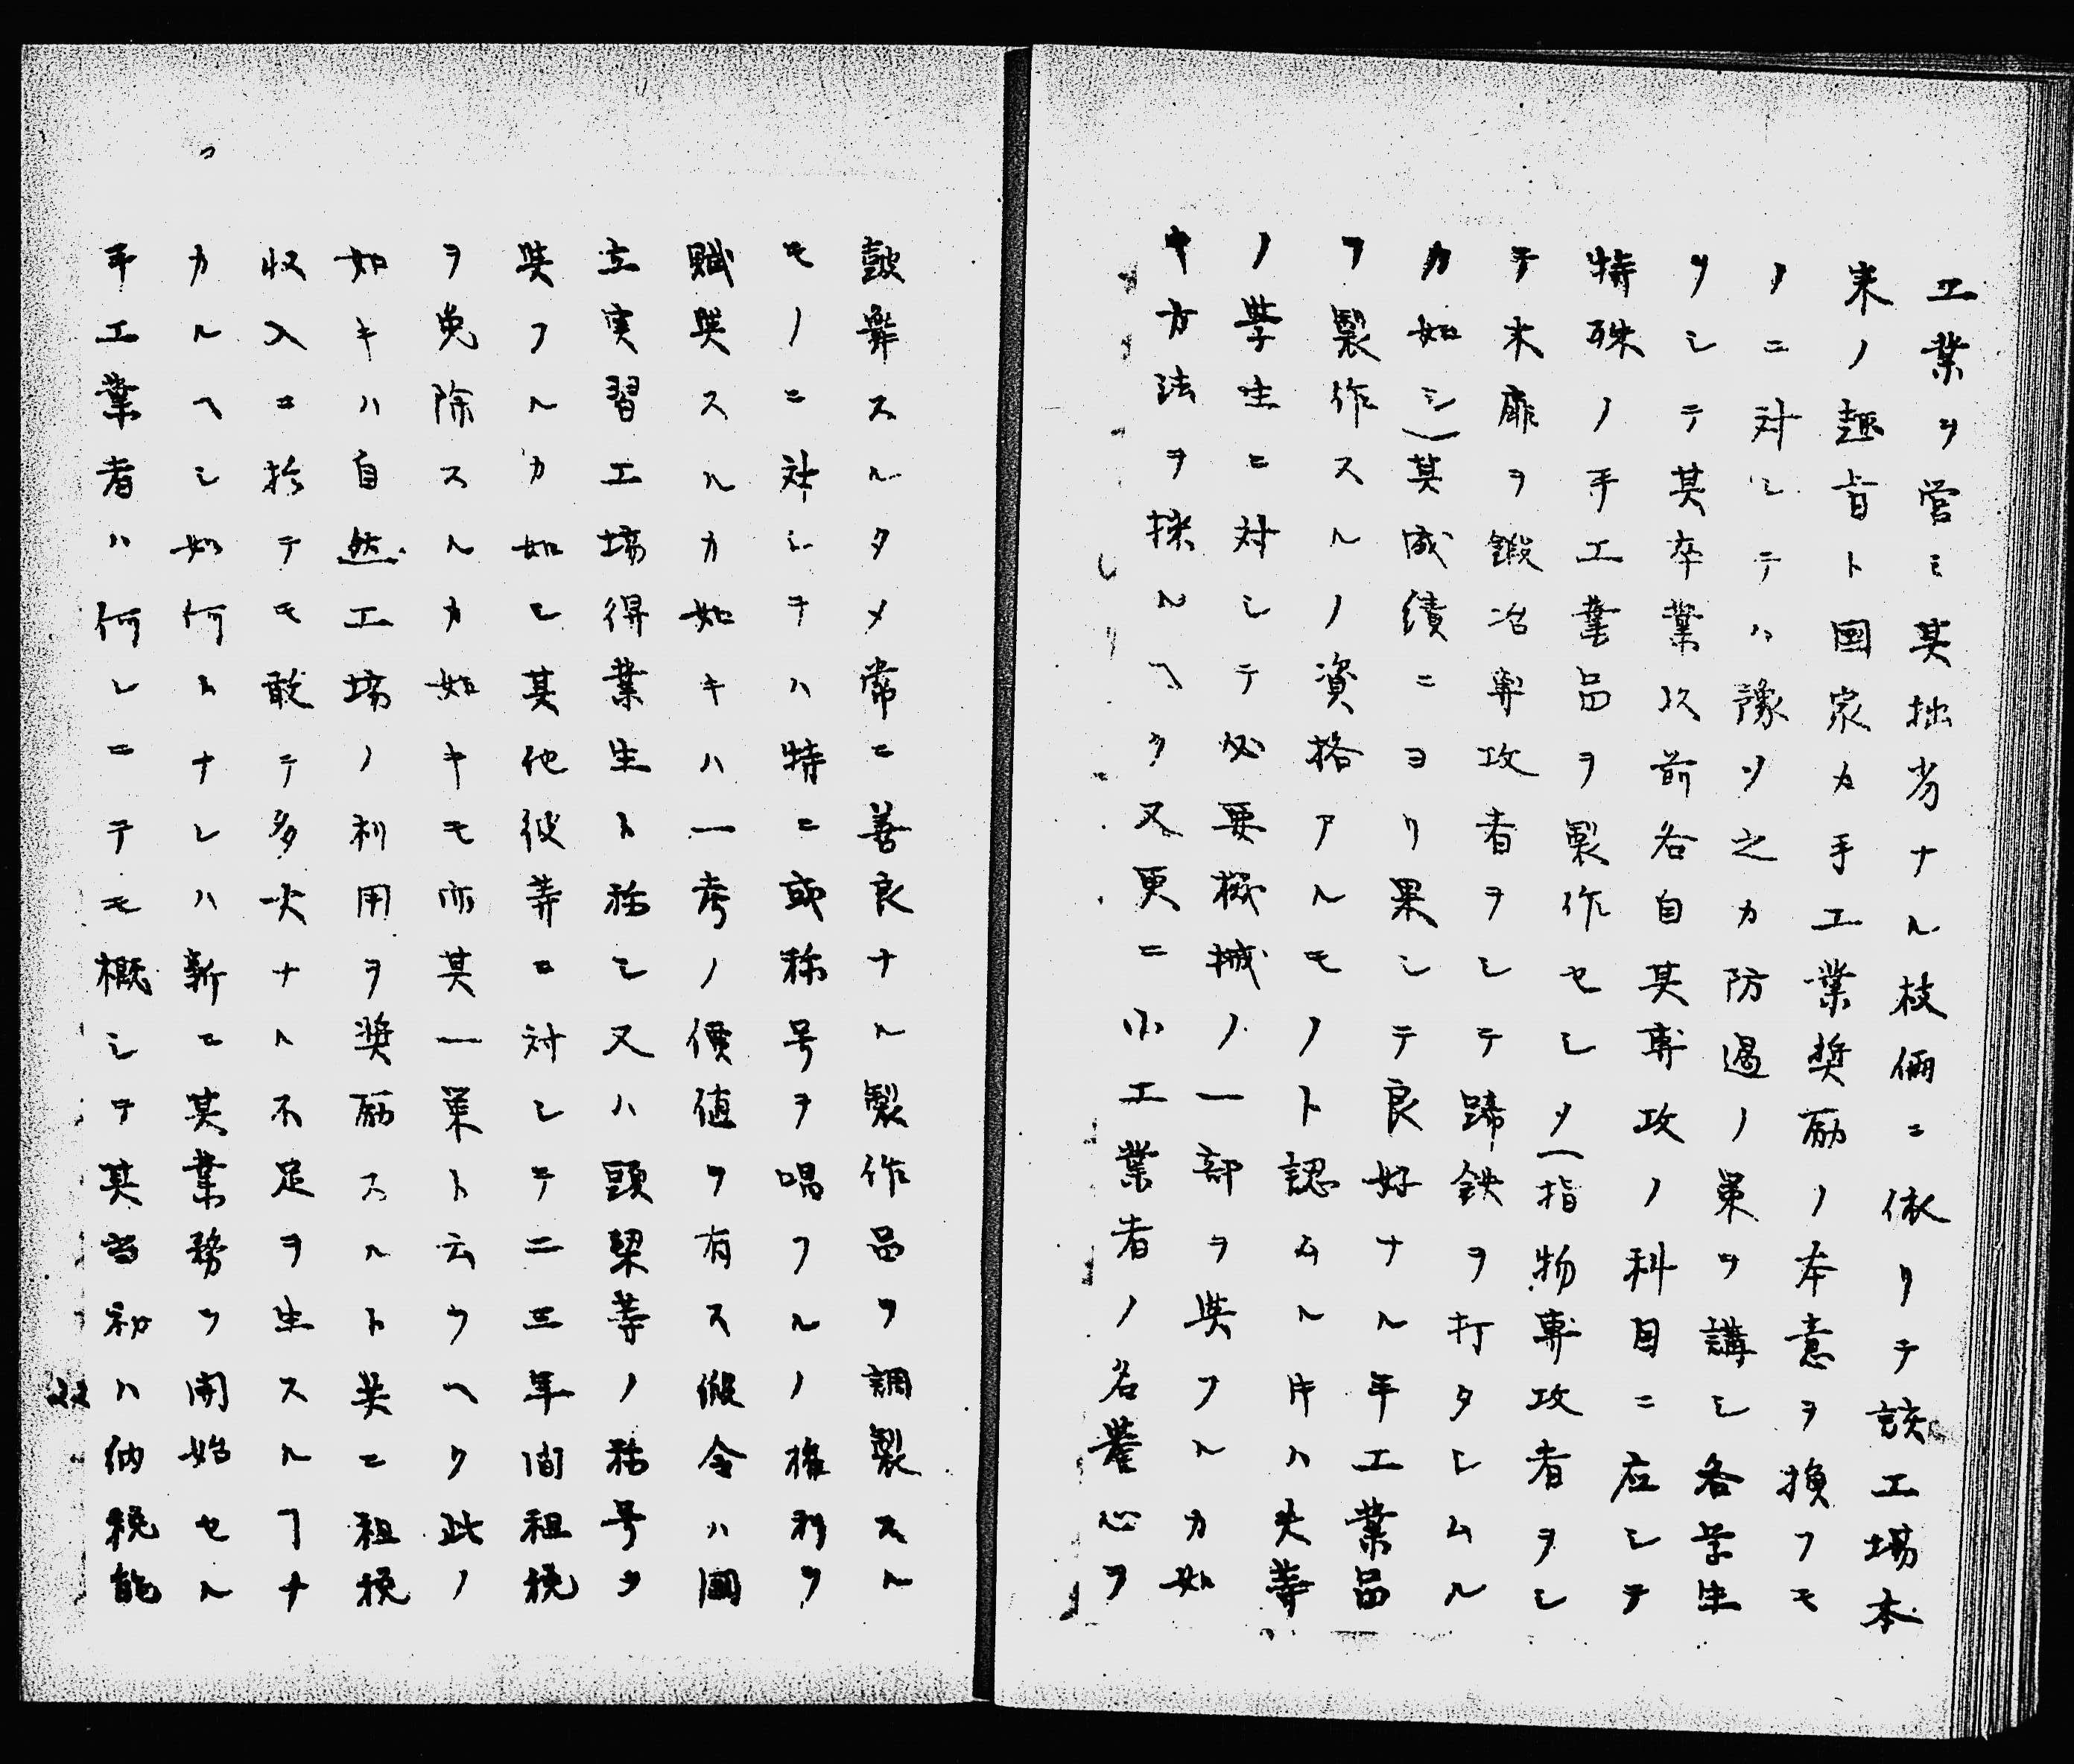 工業ヲ営ミ其拙劣ナル枝倆ニ依リテ該工場本
来ノ趣旨ト国家カ手工業奨励ノ本意ヲ損フモ
ノニ対シテハ豫メ之カ防遏ノ策ヲ講シ各学生
ヲシテ其卒業以前各自其専攻ノ科目ニ応シテ
特殊ノ手工業品ヲ製作セシメ(指物専攻者ヲシ
テ木扉ヲ鍛冶専攻者ヲシテ蹄鉄ヲ打タシムル
カ如シ)其成績ニヨリ果シテ良好ナル手工業品
ヲ製作スルノ資格アルモノト認ムル時ハ夫等
ノ学生ニ対シテ必要機械ノ一部ヲ与フルカ如
キ方法ヲ採ルヘク又更ニ小工業者ノ名誉心ヲ
鼓舞スルタメ常ニ善良ナル製作品ヲ調製スル
モノニ対シテハ特ニ或称号ヲ唱フルノ権利ヲ
賦與スルカ如キハ一考ノ價値ヲ有ス仮令ハ國
立実習工場得業生ト称シ又ハ頭梁等ノ称号ヲ
與フルカ如シ其他彼等ニ対シテ二三年間租税
ヲ免除スルカ如キモ亦其一策ト云ウヘク此ノ
如キハ自然工場ノ利用ヲ奨励スルト共ニ租税
収入ニ於テモ敢テ多大ナル不足ヲ生スルヿナ
カルヘシ如何トナレハ新ニ其業務ヲ開始セル
手工業者ハ何レニテモ概シテ其当初ハ納税能
22